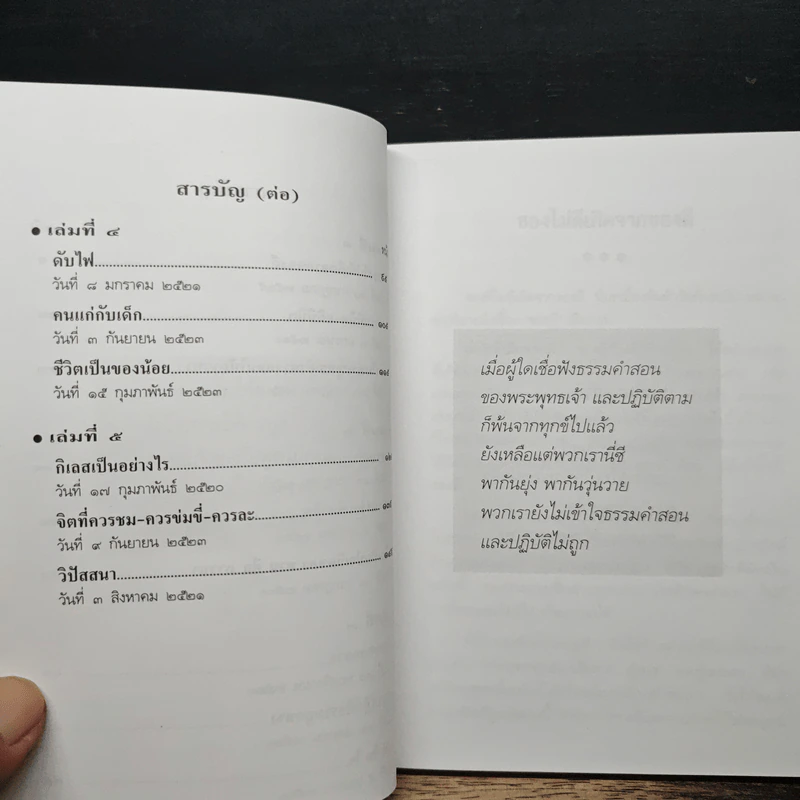 สารบัญ (ต่อ)
● เล่มที่ ๔
ดับไฟ
วันที่ ๘ มกราคม ๒๕๒๑
คนแก่กับเด็ก
วันที่ ๓ กันยายน ๒๕๒๓
ชีวิตเป็นของน้อย
วันที่ ๑๕ กุมภาพันธ์ ๒๕๒๓
● เล่มที่ ๕
กิเลสเป็นอย่างไร
วันที่ ๑๗ กุมภาพันธ์ ๒๕๒๐
จิตที่ควรชม-ควรข่มขี่-ควรละ
วันที่ ๙ กันยายน ๒๕๒๓
วิปัสสนา
วันที่ ๓ สิงหาคม ๒๕๒๑
เมื่อผู้ใดเชื่อฟังธรรมคำสอน
ของพระพุทธเจ้า และปฏิบัติตาม
ก็พ้นจากทุกข์ไปแล้ว
ยังเหลือแต่พวกเรานี่ซี
พากันยุ่ง พากันวุ่นวาย
พวกเรายังไม่เข้าใจธรรมคำสอน
และปฏิบัติไม่ถูก